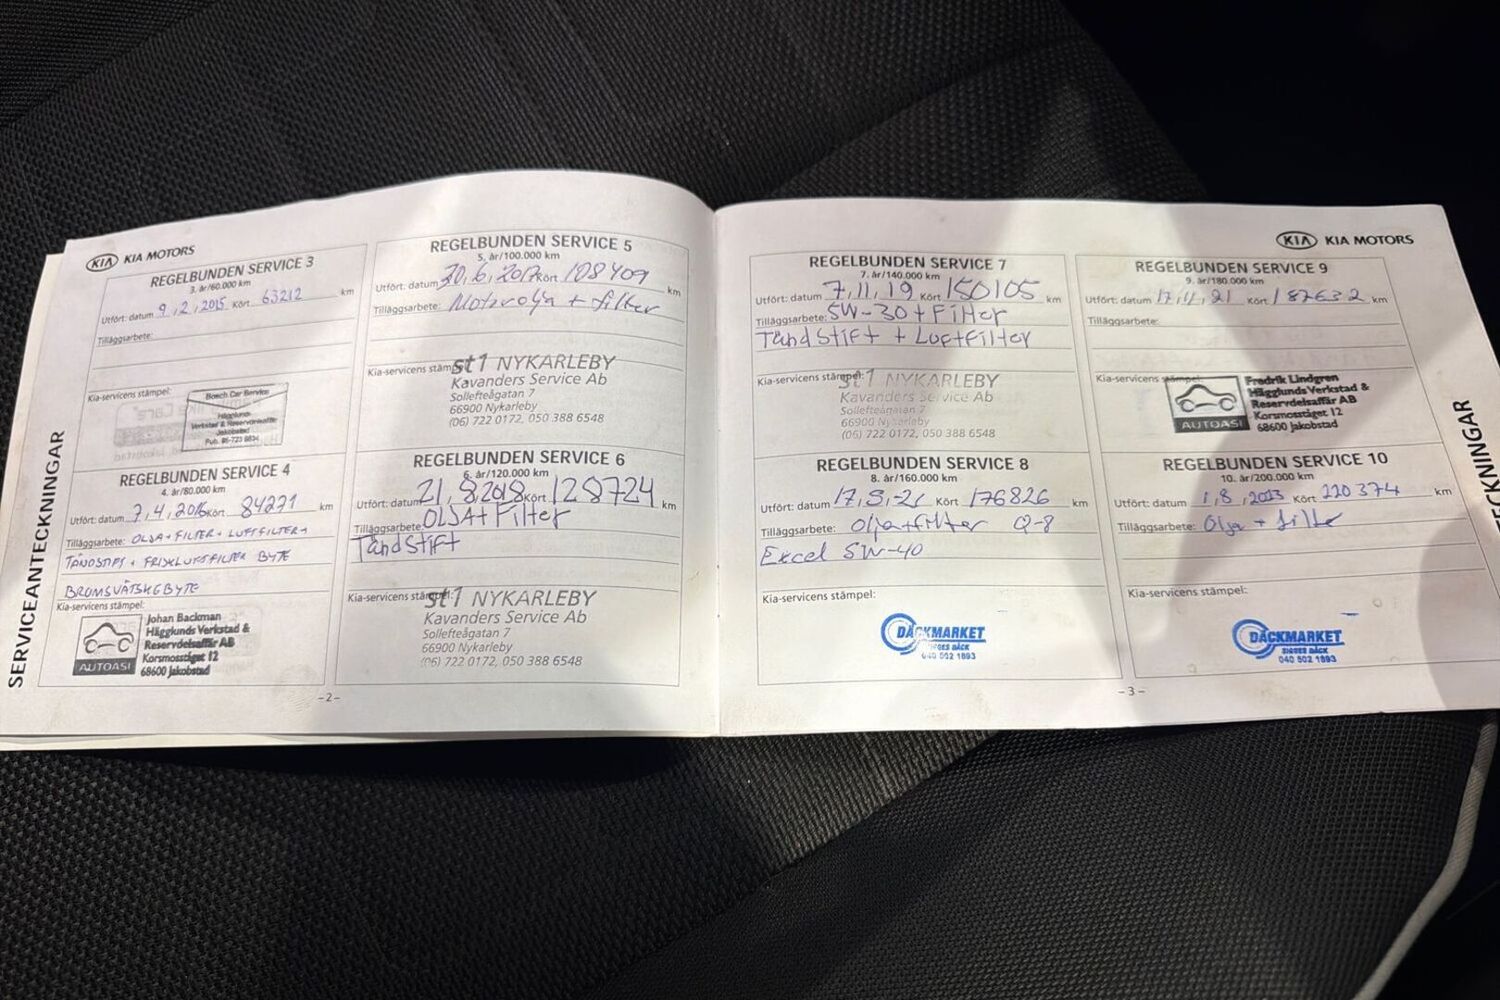 SERVICEANTECKNINGAR
KIA KIA MOTORS
REGELBUNDEN SERVICE 3
3. år/60.000 km
Utfört: datum 9,2,2015 Kört 63212 km
Tilläggsarbete:
Kia-servicens stämpel:
Bosch Car Service
Hägglunds
Verkstad & Reservdelsaffär
Jakobstad
Puh. 06-723 0834
REGELBUNDEN SERVICE 4
4. år/80.000 km
Utfört: datum 7,4,2016 Kört 84271 km
Tilläggsarbete: OLJA + FILTER + LUFTFILTER +
TÄNDSTIFT + FRISKLUFTSFILTER BYTE
BROMSVÄTSKEBYTE
Kia-servicens stämpel:
AUTOASI
Johan Backman
Hägglunds Verkstad &
Reservdelsaffär AB
Korsmosstiget 12
68600 Jakobstad
REGELBUNDEN SERVICE 5
5. år/100.000 km
Utfört: datum 30,6,2017 Kört 108409 km
Tilläggsarbete: Motorolja + filter
Kia-servicens stämpel:
st1 NYKARLEBY
Kavanders Service Ab
Sollefteågatan 7
66900 Nykarleby
(06) 722 0172, 050 388 6548
REGELBUNDEN SERVICE 6
6. år/120.000 km
Utfört: datum 21,8,2018 Kört 128724 km
Tilläggsarbete: OLJA + Filter
Tändstift
Kia-servicens stämpel:
st1 NYKARLEBY
Kavanders Service Ab
Sollefteågatan 7
66900 Nykarleby
(06) 722 0172, 050 388 6548
-2-
KIA KIA MOTORS
REGELBUNDEN SERVICE 7
7. år/140.000 km
Utfört: datum 7,11,19 Kört 150105 km
Tilläggsarbete: 5W-30 + Filter
Tändstift + Luftfilter
Kia-servicens stämpel:
st1 NYKARLEBY
Kavanders Service Ab
Sollefteågatan 7
66900 Nykarleby
(06) 722 0172, 050 388 6548
REGELBUNDEN SERVICE 8
8. år/160.000 km
Utfört: datum 17,5,21 Kört 176826 km
Tilläggsarbete: Olja + filter Q-8
Excel 5W-40
Kia-servicens stämpel:
DÄCKMARKET
SIGGES DÄCK
040 502 1893
REGELBUNDEN SERVICE 9
9. år/180.000 km
Utfört: datum 17,11,21 Kört 187632 km
Tilläggsarbete:
Kia-servicens stämpel:
AUTOASI
Fredrik Lindgren
Hägglunds Verkstad &
Reservdelsaffär AB
Korsmosstiget 12
68600 Jakobstad
REGELBUNDEN SERVICE 10
10. år/200.000 km
Utfört: datum 1,8,2023 Kört 220374 km
Tilläggsarbete: Olja + filter
Kia-servicens stämpel:
DÄCKMARKET
SIGGES DÄCK
040 502 1893
-3-
TECKNINGAR